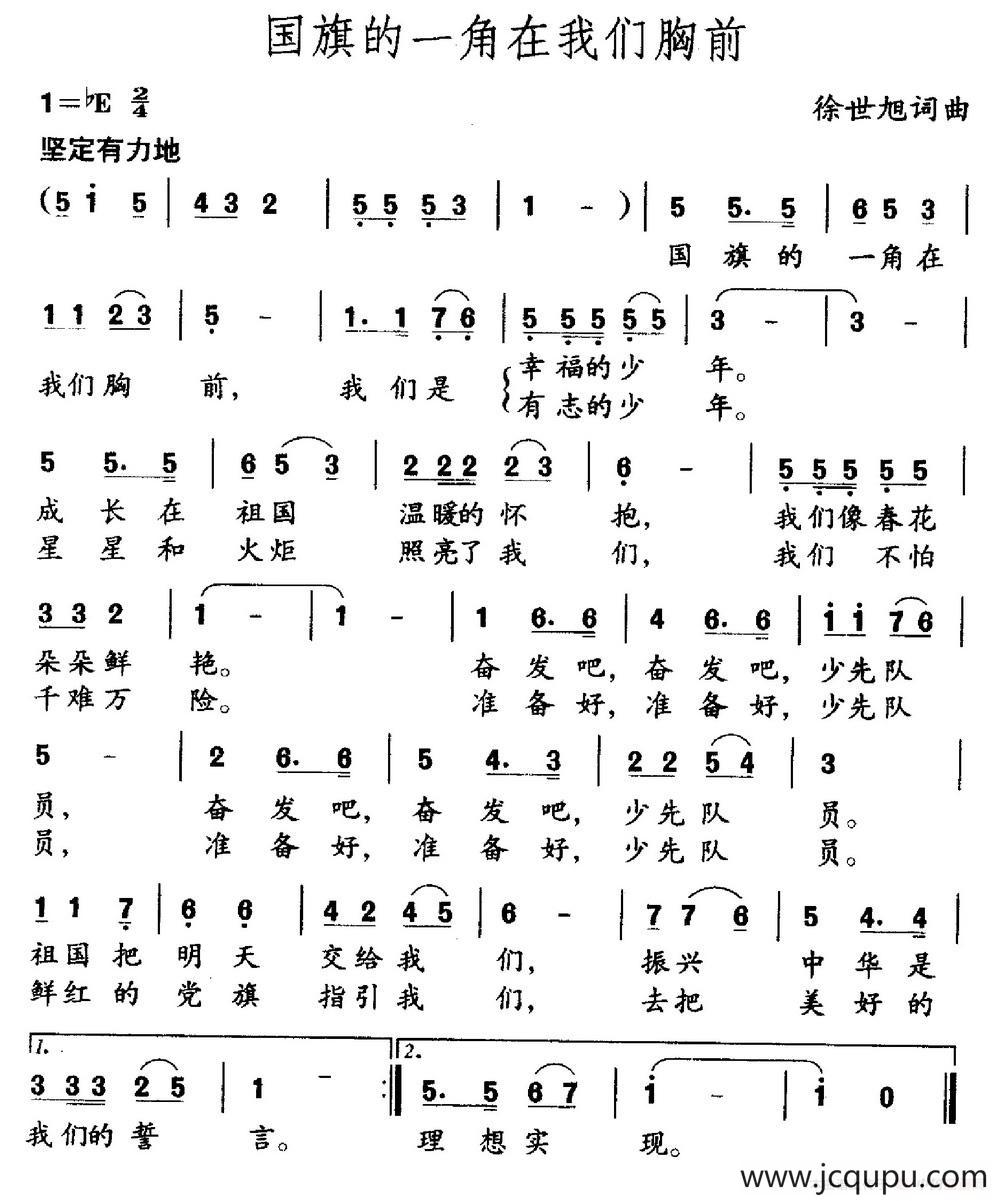 国旗的一角在我们胸前
1=♭E 2/4
徐世旭词曲
坚定有力地
(5 i 5 | 4 3 2 | 5 5 5 3 | 1 - ) | 5 5. 5 | 6 5 3 |
国 旗 的 一角在
1 1 2 3 | 5 - | 1. 1 7 6 | 5 5 5 5 5 | 3 - | 3 - |
我们胸 前, 我 们是 { 幸福的少 年。
有志的少 年。
5 5. 5 | 6 5 3 | 2 2 2 2 3 | 6 - | 5 5 5 5 5 |
成 长 在 祖国 温暖的怀 抱, 我们像春花
星 星 和 火炬 照亮了我 们, 我们 不怕
3 3 2 | 1 - | 1 - | 1 6. 6 | 4 6. 6 | i i 7 6 |
朵朵鲜 艳。 奋 发 吧, 奋 发 吧, 少先队
千难万 险。 准 备 好, 准 备 好, 少先队
5 - | 2 6. 6 | 5 4. 3 | 2 2 5 4 | 3
员, 奋 发 吧, 奋 发 吧, 少先队 员。
员, 准 备 好, 准 备 好, 少先队 员。
1 1 7 | 6 6 | 4 2 4 5 | 6 - | 7 7 6 | 5 4. 4 |
祖国把 明 天 交给我 们, 振兴 中 华 是
鲜红的 党 旗 指引我 们, 去把 美 好 的
1. 2.
3 3 3 2 5 | 1 - :| 5. 5 6 7 | i - | i 0 |
我们的誓 言。 理 想实 现。
www.jcqupu.com